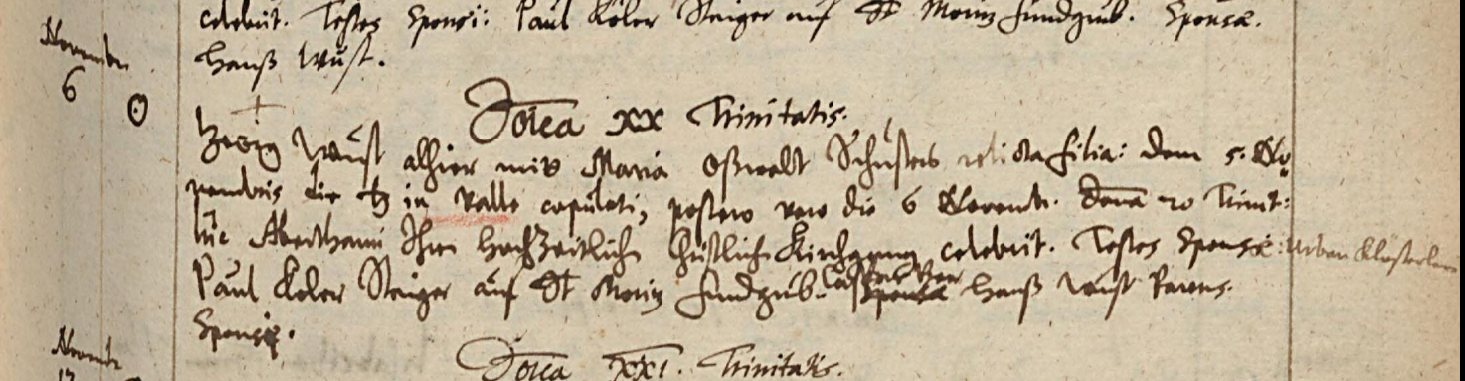 celebrit. Testes Sponsi: Paul Köler Steiger auf St Moriz fundgrub. Sponsæ.
Novembr
6
Hanß Wüst.
☉
Do͞ica XX Trinitatis.
Georg Wüst alhier mit Maria Oßwaldt Schusters relicta filia: dem 5. No=
vembris die ♄ in Valle copulati, postero vero die 6 Novemb. 20 Trinit:
hic Aberthami Ihren Hochzeitlich Christlich Kirchgang celebrit. Testes Sponsæ: Urban
Paul Köler Steiger auf St Moriz fundgrub. Hanß Wüst Parens.
Sponsi.
Novemb
Do͞ica XXI. Trinitatis.